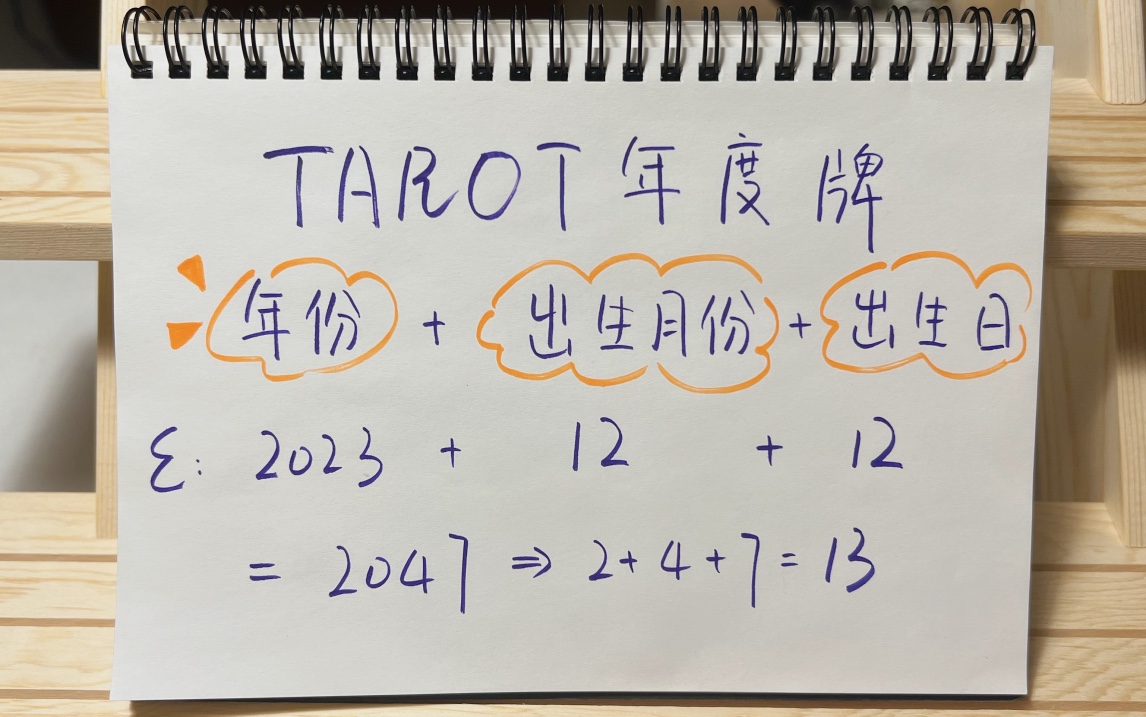 TAROT 年度牌
年份 + 出生月份 + 出生日
ε: 2023 + 12 + 12
= 2047 ⇒ 2+4+7=13